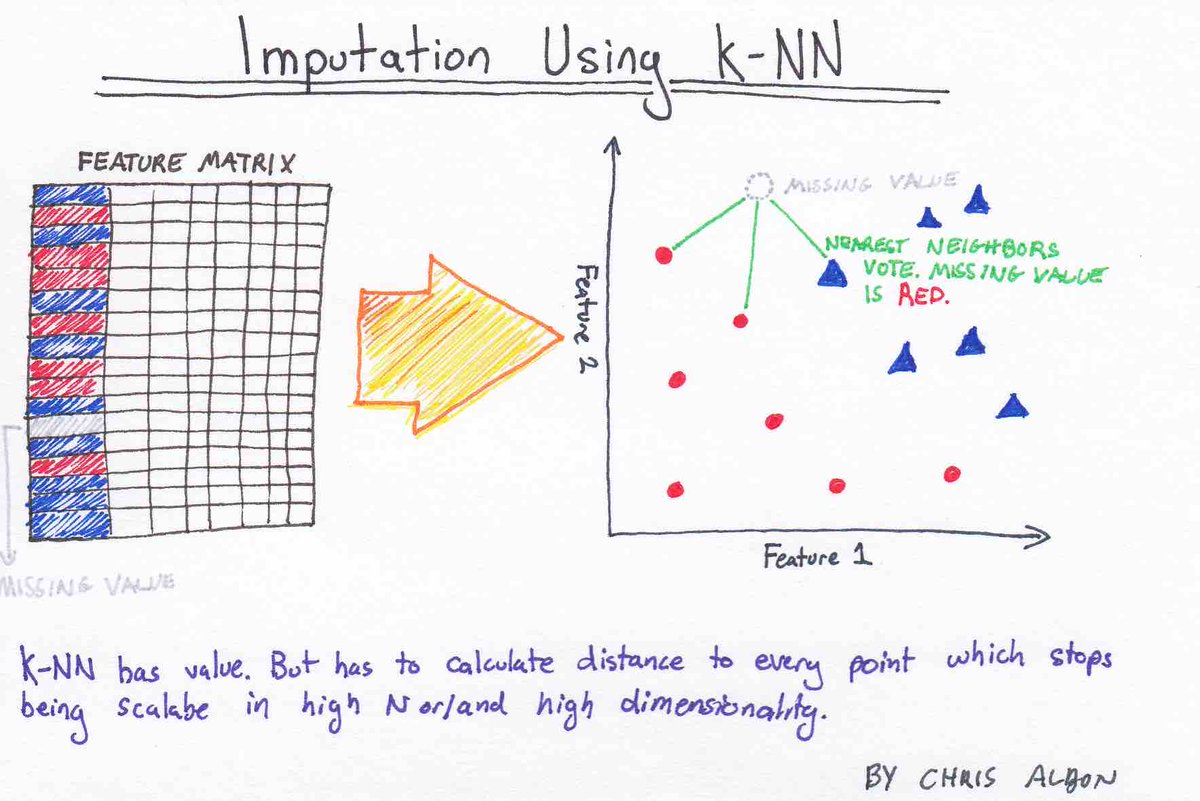 Imputation Using K-NN
FEATURE MATRIX
MISSING VALUE
MISSING VALUE
NEAREST NEIGHBORS
VOTE. MISSING VALUE
IS RED.
Feature 2
Feature 1
K-NN has value. But has to calculate distance to every point which stops
being scalabe in high N or/and high dimensionality.
BY CHRIS ALBON